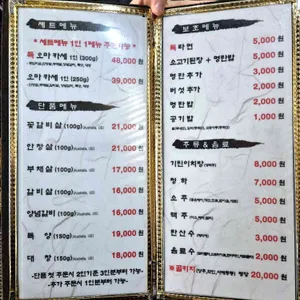 세트메뉴
* 세트메뉴 1인 1메뉴 주문가능 *
특 오마카세 1인 (300g) 48,000 원
오마카세 1인 (250g) 39,000 원
단품메뉴
꽃갈비살 (100g) 21,000 원
안창살 (100g) 21,000 원
부채살 (100g) 17,000 원
갈비살 (100g) 16,000 원
양념갈비 (100g) 16,000 원
특 상 (150g) 19,000 원
대 창 (150g) 18,000 원
-단품 첫 주문시 2인기준 3인분부터 가능-
-추가 주문시 1인분부터 가능-
보조메뉴
특라면 5,000 원
소고기된장 + 명란밥 5,000 원
명란추가 3,000 원
버섯추가 2,000 원
명란밥 2,000 원
공기밥 1,000 원
주류 & 음료
8,000 원
청하 7,000 원
소주 5,000 원
맥주 5,000 원
탄산수 3,000 원
음료수 2,000 원
※콜키지 병당 20,000 원